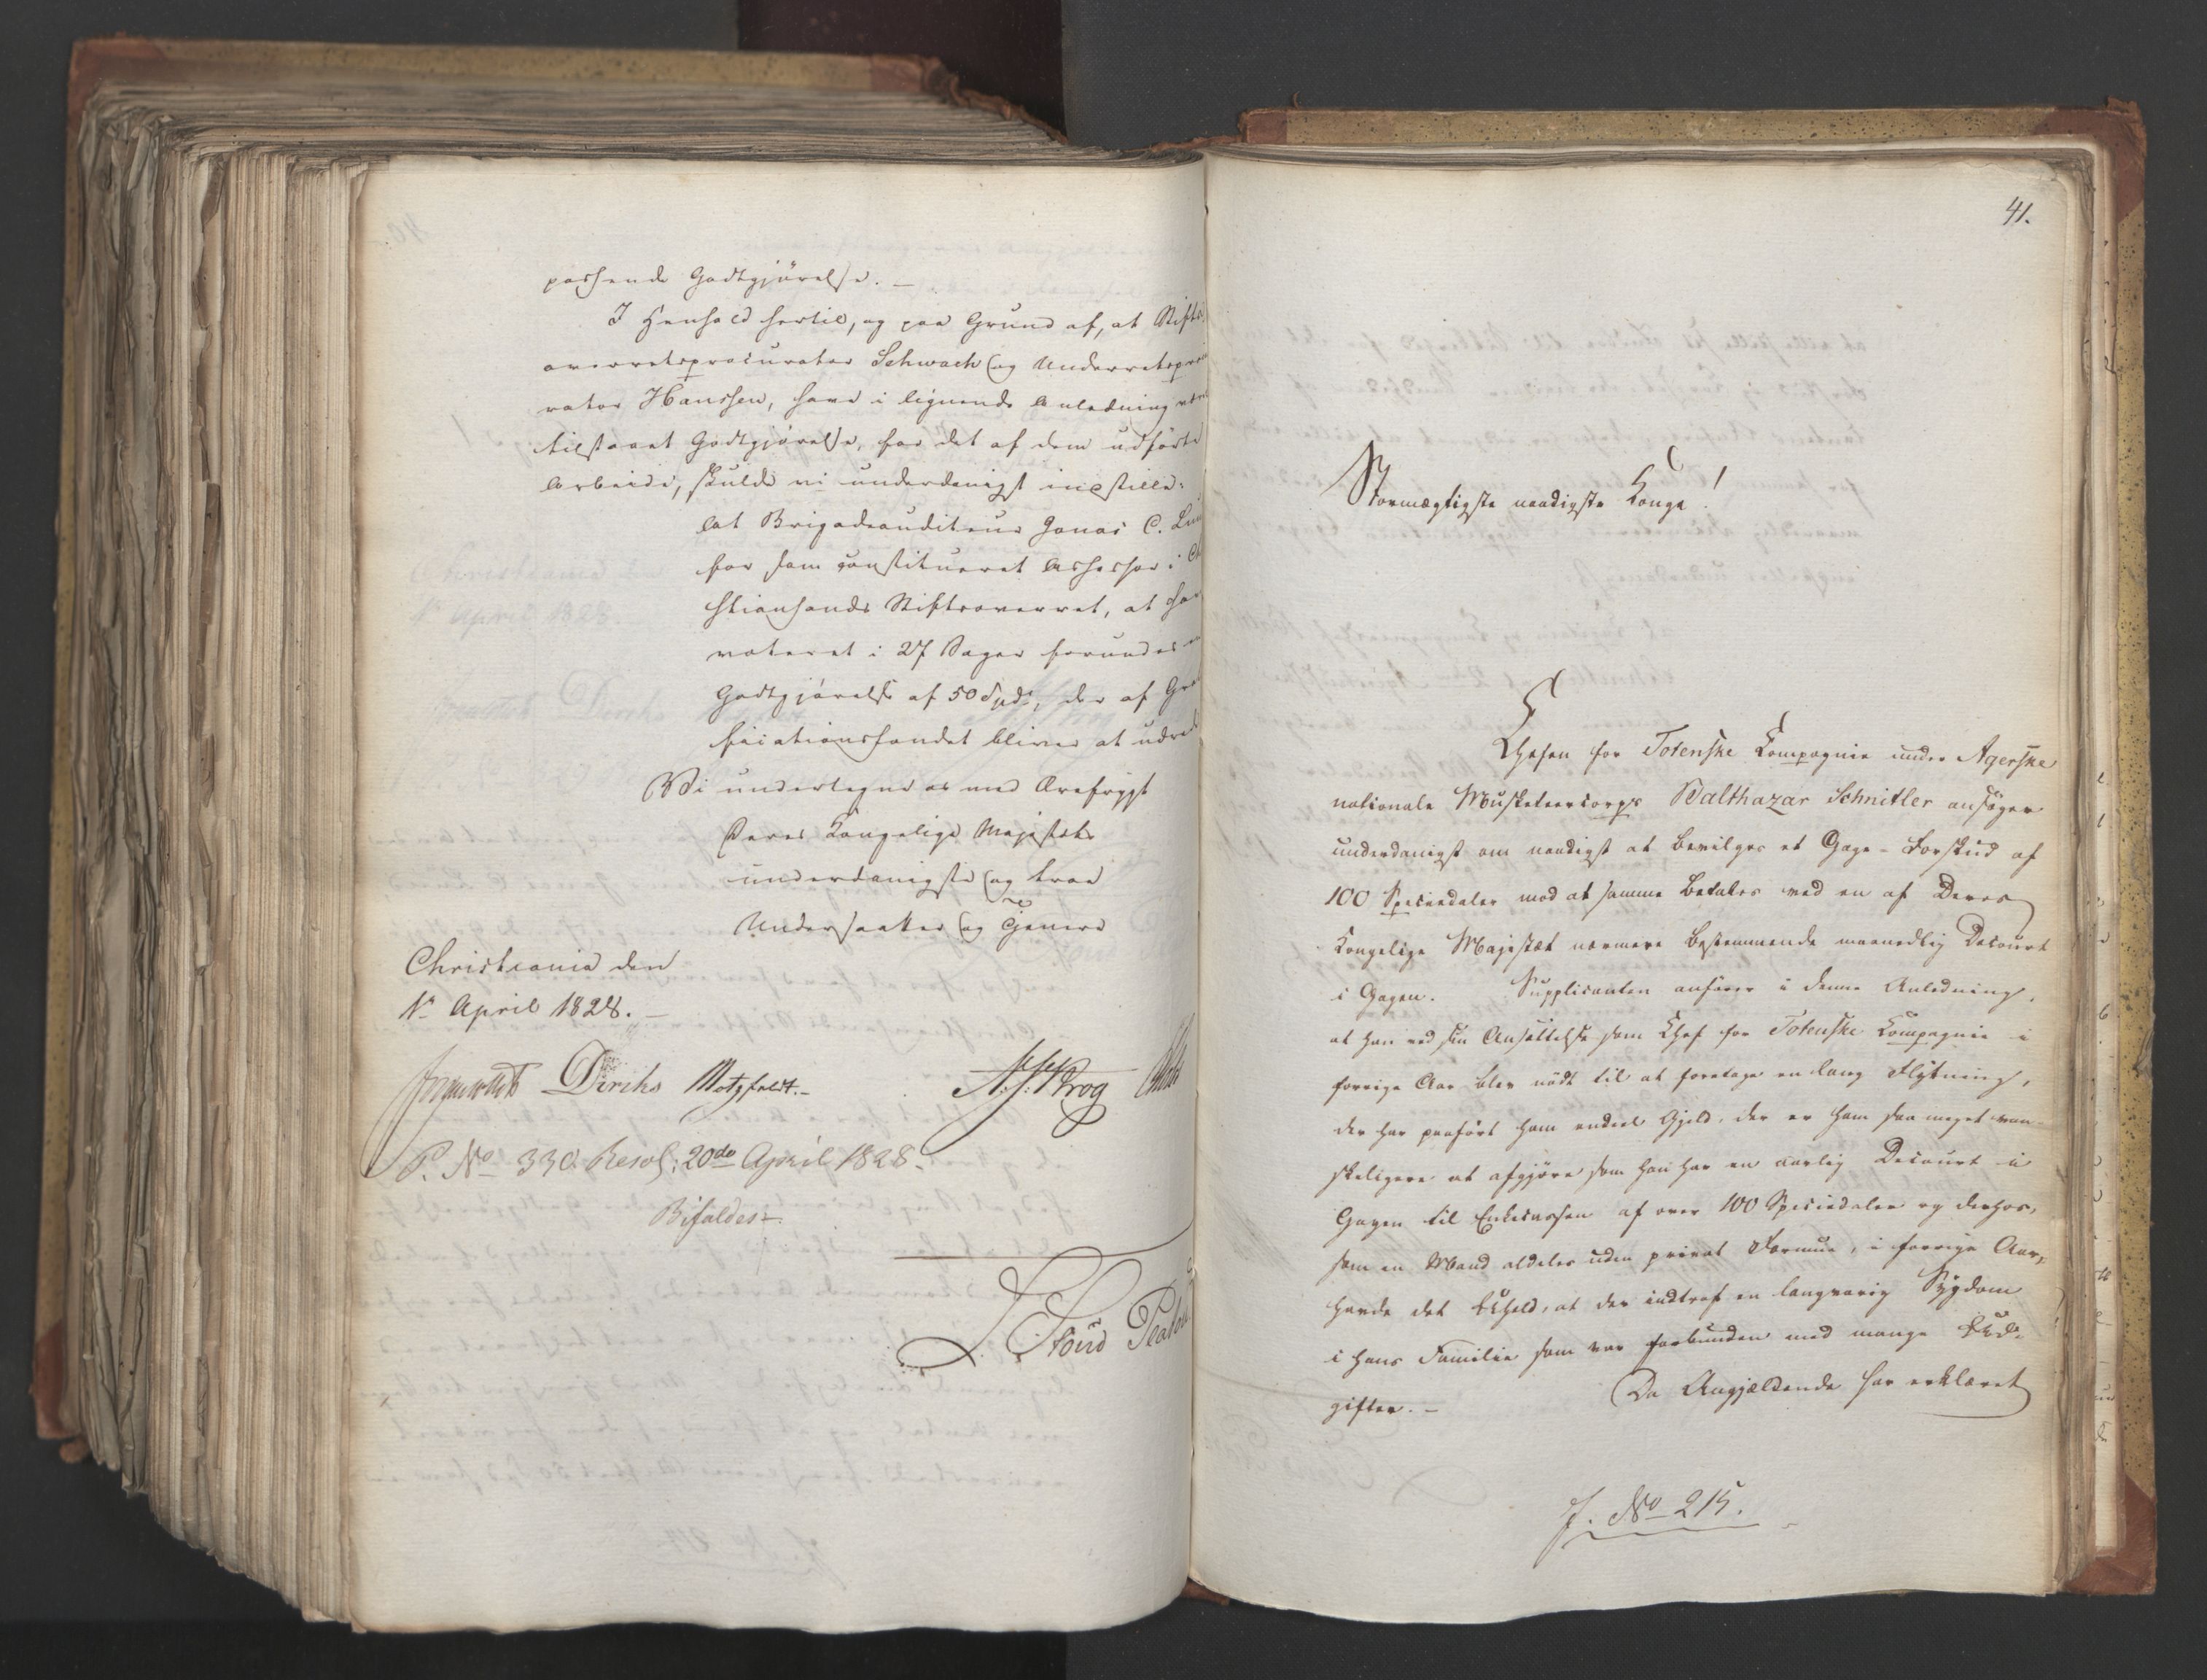 passende Godtgjörelse. —
I Henhold hertil, og paa Grund af, at Stifts
overretsprocurator Schwach og Underretsprocu
rator Hanssen, have i lignende Anledning været
tilstaaet Godtgjörelse, for det af dem udförte
Arbeide, skulde vi underdanigst indstille:
at Brigadeauditeur Jonas C. Lund
for som constitueret Assessor i Chri
stiansands Stiftsoverret, at have
voteret i 27 Sager forundes en
Godtgjörelse af 50 Spd, der af Grati
ficationsfondet bliver at udrede
Vi undertegne os med Ærefrygt
Deres Kongelige Majestæts
underdanigste og troe
Undersaatter og Tjenere
Christiania den
1e April 1828. —
Diriks Motzfeldt. — A. J. Krog
P. No 330. Resol: 20de April 1828.
Bifaldes —
41.
Stormægtigste naadigste Konge!
Chefen for Totenske Compagnie under Agerske
nationale Musketeercorps Balthazar Schnitler ansöger
underdanigst om naadigst at bevilges et Gage-Forskud af
100 Speciedaler mod at samme betales ved en af Deres
Kongelige Majestæt nærmere bestemmende maanedlig Decourt
i Gagen. Supplicanten anförer i denne Anledning,
at han ved sin Ansættelse som Chef for Totenske Compagnie i
forrige Aar blev nödt til at foretage en lang Flytning,
der har paaført ham endeel Gjeld, der er ham saa meget van
skeligere at afgjöre som han har en aarlig Decourt i
Gagen til Enkecassen af over 100 Speciedaler og derhos,
som en Mand aldeles uden privat Formue, i forrige Aar,
havde det Uheld, at der indtraf en langvarig Sygdom
i hans Familie som var forbunden med mange Ud-
gifter. — Da Angjældende har erklæret
J. No 215.